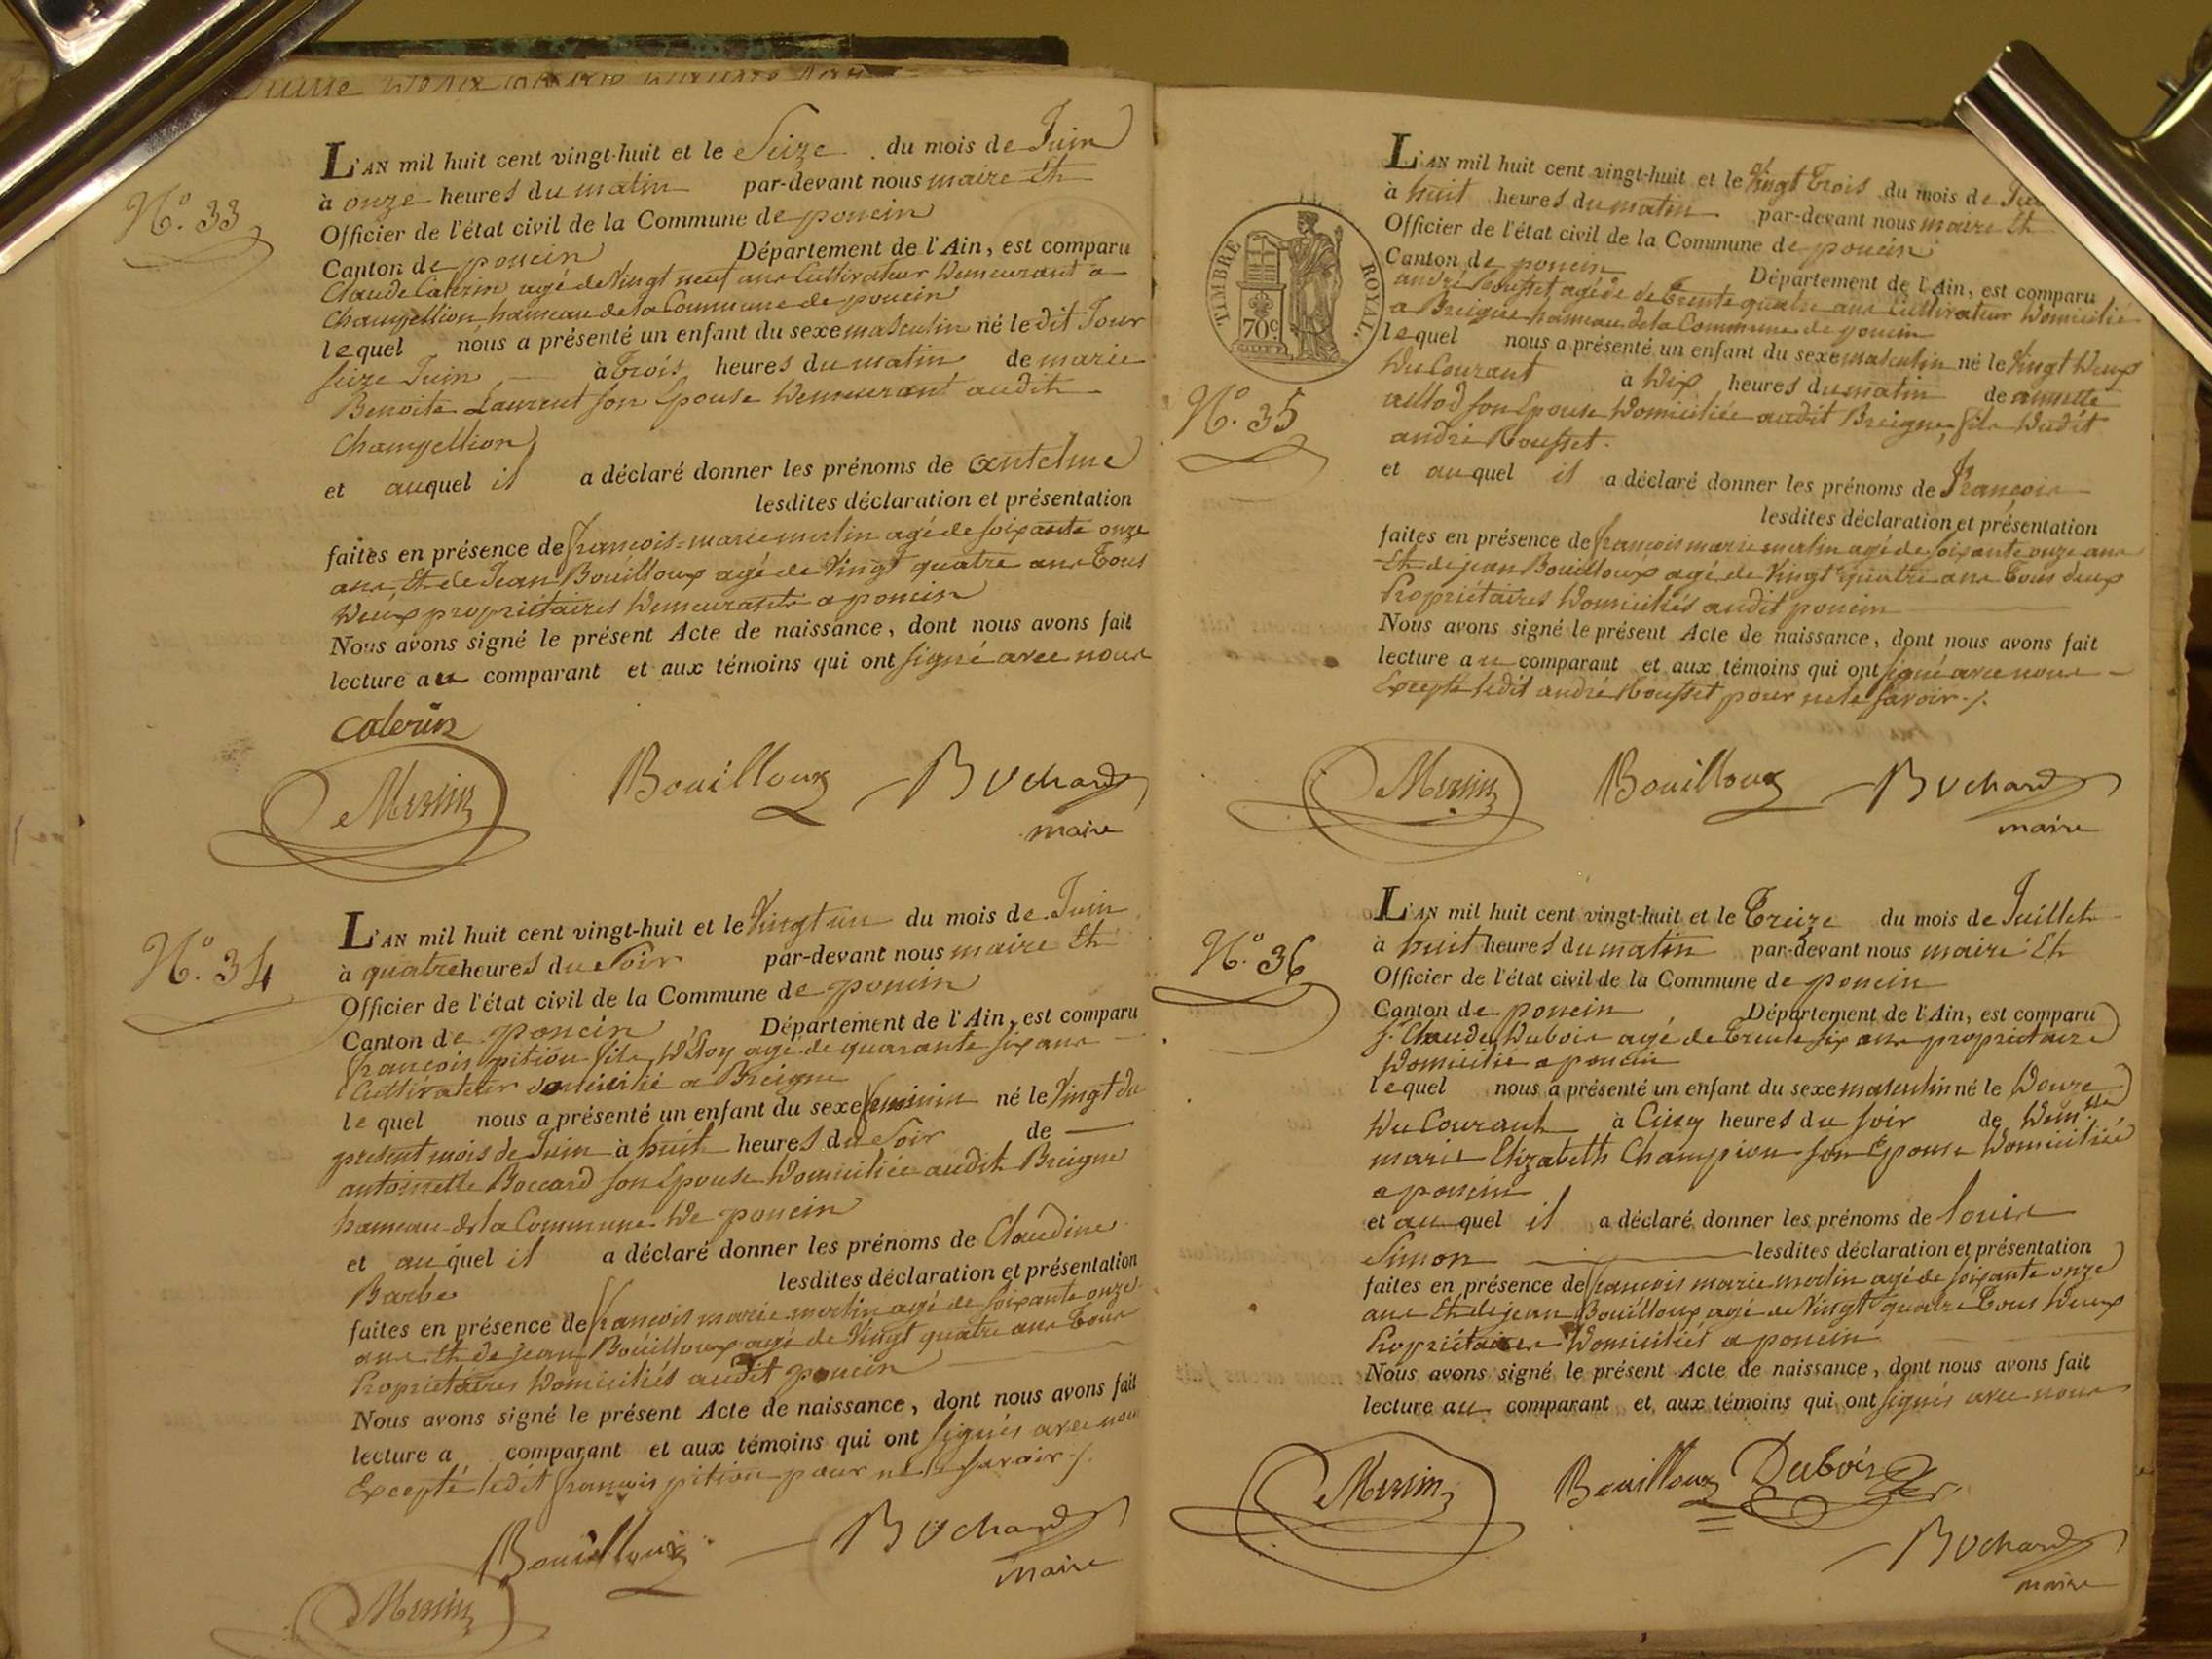 N.º 33
L'AN mil huit cent vingt-huit et le Seize du mois de Juin
à onze heures du matin par-devant nous maire Et
Officier de l'état civil de la Commune de poncin
Canton de poncin Département de l'Ain, est comparu
Claude Caterin agé de Vingt neuf ans Cultivateur Demeurant a
hameau de la Commune de poncin
lequel nous a présenté un enfant du sexe masculin né le dit Jour
seize Juin à Trois heures du matin de marie
Benoite Laurent son Epouse Demeurant audit
et auquel il a déclaré donner les prénoms de Antelme
lesdites déclaration et présentation
faites en présence de françois-marie merlin agé de soixante onze
ans, Et de Jean Bouilloux agé de Vingt quatre ans Tous
Deux propriétaires Demeurants a poncin
Nous avons signé le présent Acte de naissance, dont nous avons fait
lecture au comparant et aux témoins qui ont signé avec nous
Caterin
Merlin Bouilloux Bochard
maire
N.º 34
L'AN mil huit cent vingt-huit et le Vingt un du mois de Juin
à quatre heures du Soir par-devant nous maire Et
Officier de l'état civil de la Commune de poncin
Canton de poncin Département de l'Ain, est comparu
françois pition fils D'Eloy agé de quarante six ans
Cultivateur domicilié a Breigne
lequel nous a présenté un enfant du sexe feminin né le Vingt du
présent mois de Juin à huit heures du Soir de
antoinette Boccard son Epouse Domiciliée audit Breigne
hameau de la Commune De poncin
et auquel il a déclaré donner les prénoms de Claudine
Barbe lesdites déclaration et présentation
faites en présence de françois marie merlin agé de soixante onze
ans Et de jean Bouilloux agé de Vingt quatre ans Tous
Propriétaires Domiciliés audit poncin
Nous avons signé le présent Acte de naissance, dont nous avons fait
lecture a comparant et aux témoins qui ont signés avec nous
Excepté ledit françois pition pour ne le savoir ./.
Bouilloux Bochard
maire
Merlin
TIMBRE ROYAL.
70c
N.º 35
L'AN mil huit cent vingt-huit et le Vingt Trois du mois de
à huit heures du matin par-devant nous maire Et
Officier de l'état civil de la Commune de poncin
Canton de poncin Département de l'Ain, est comparu
andré Rousset agé de de Trente quatre ans Cultivateur Domicilié
a Breigne hameau de la Commune de poncin
lequel nous a présenté un enfant du sexe masculin né le Vingt Deux
Du Courant à Dix heures du matin de annette
son Epouse Domiciliée audit Breigne, fils Dudit
andré Rousset.
et auquel il a déclaré donner les prénoms de François
lesdites déclaration et présentation
faites en présence de françois marie merlin agé de soixante onze ans
Et de jean Bouilloux agé de Vingt quatre ans Tous deux
Propriétaires Domiciliés audit poncin
Nous avons signé le présent Acte de naissance, dont nous avons fait
lecture au comparant et aux témoins qui ont signé avec nous
Excepté ledit andré Rousset pour ne le savoir ./.
Merlin Bouilloux Bochard
maire
N.º 36
L'AN mil huit cent vingt-huit et le Treize du mois de Juillet
à huit heures du matin par-devant nous maire Et
Officier de l'état civil de la Commune de poncin
Canton de poncin Département de l'Ain, est comparu
Claude Dubois agé de Trente six ans propriétaire
Domicilié a poncin
lequel nous a présenté un enfant du sexe masculin né le Douze
Du Courant à Cinq heures du soir de
marie Elizabeth Champion son Epouse Domiciliée
a poncin
et auquel il a déclaré donner les prénoms de louis
Simon lesdites déclaration et présentation
faites en présence de françois marie merlin agé de soixante onze
ans Et de jean Bouilloux agé de Vingt quatre Tous Deux
Propriétaires Domiciliés a poncin
Nous avons signé le présent Acte de naissance, dont nous avons fait
lecture au comparant et aux témoins qui ont signés avec nous
Merlin Bouilloux Dubois
Bochard
maire